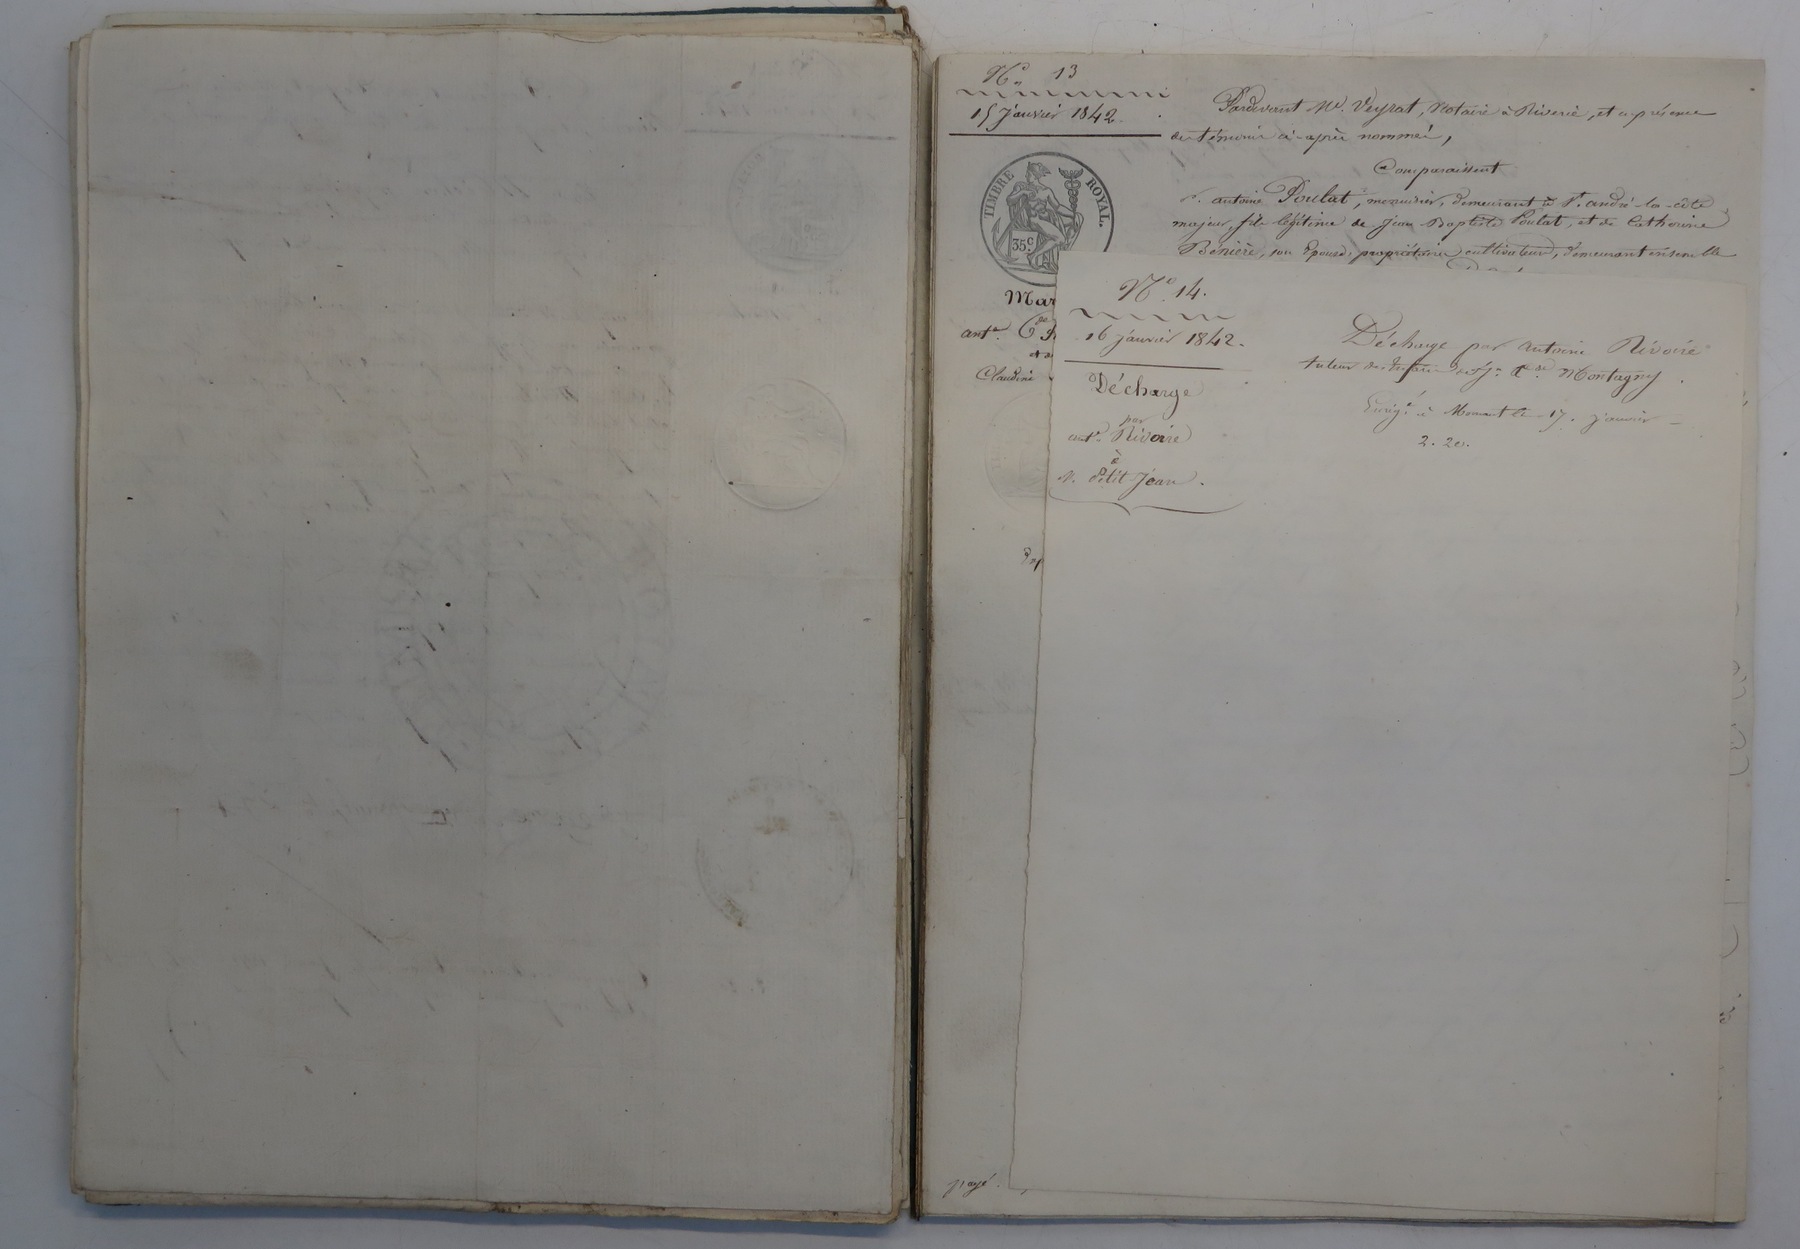 No 13
15 Janvier 1842.
TIMBRE ROYAL.
35c
Mar
antne
Claudine
Pardevant Me. Veyrat, Notaire à Riverie, et en présence
de témoins ci-après nommés,
Comparaissent
Sr. antoine Poulat, menuisier, demeurant à St. andré-la-côte
majeur, fils légitime de Jean Baptiste Poulat, et de Catherine
Bénière, son épouse, propriétaires cultivateurs, demeurant ensemble
No 14.
16 janvier 1842.
Décharge
par
antne Rivoire
à
M. Petit Jean.
Décharge par antoine Rivoire
tuteur Montagny.
Enregé à Mornant le 17. janvier
2. 20.
payé.